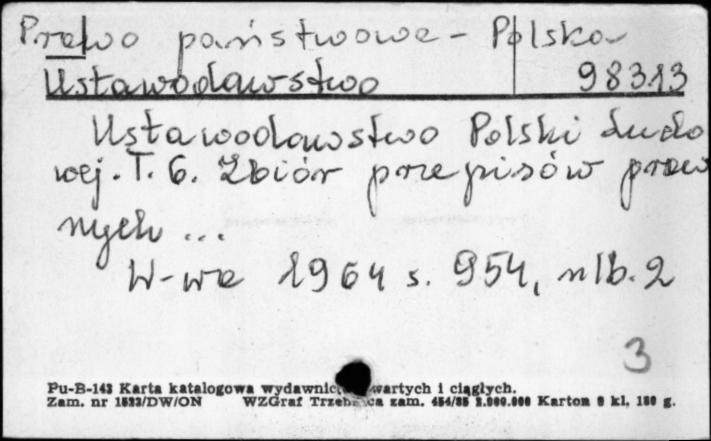 Prawo państwowe - Polska
Ustawodawstwo 98313
Ustawodawstwo Polski Ludo
wej. T. 6. Zbiór przepisów praw
nych ...
W-wa 1964 s. 954, nlb. 2
3
Pu-B-143 Karta katalogowa wartych i ciągłych.
Zam. nr 1523/DW/ON WZGraf zam. 454/85 2.000.000 Karton 8 kl, 180 g.